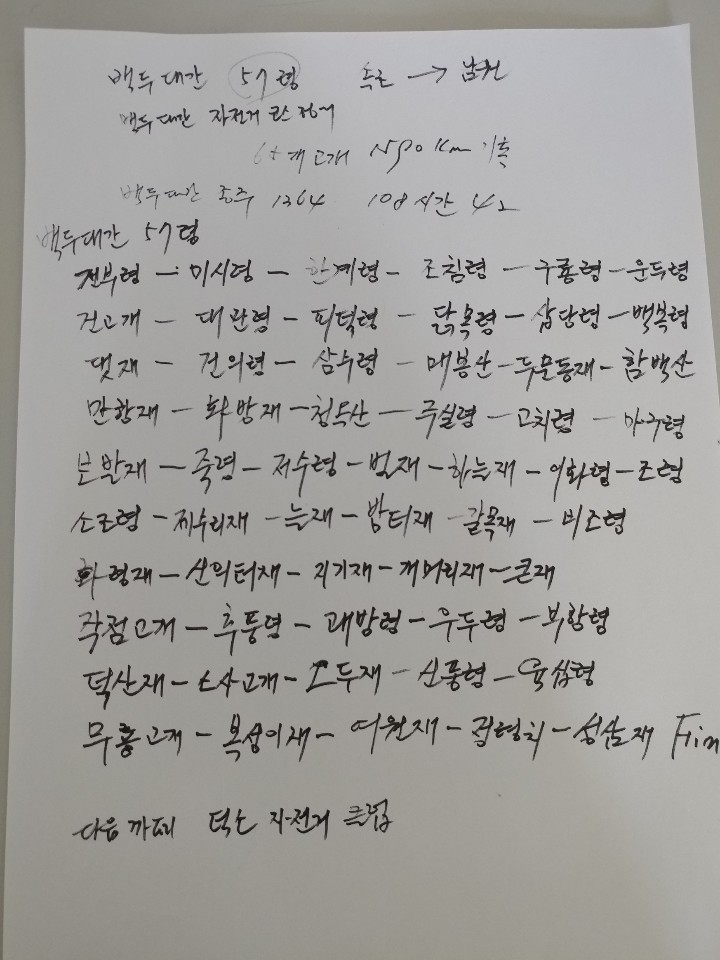 백두대간 57령 속초 → 남원
백두대간 자전거 코스
개고개 590 Km 기록
백두대간 종주 1264 108시간 42
백두대간 57령
진부령 - 미시령 - 한계령 - 조침령 - 구룡령 - 운두령
진고개 - 대관령 - 피덕령 - 닭목령 - 삽당령 - 백복령
댓재 - 건의령 - 삼수령 - 매봉산 - 두문동재 - 함백산
만항재 - 화방재 - 청옥산 - 주실령 - 고치령 - 마구령
보발재 - 죽령 - 저수령 - 벌재 - 하늘재 - 이화령 - 조령
소조령 - 제수리재 - 늘재 - 밤티재 - 갈목재 - 비조령
화령재 - 신의터재 - 지기재 - 개머리재 - 큰재
작점고개 - 추풍령 - 괘방령 - 우두령 - 부항령
덕산재 - 소사고개 - 오두재 - 신풍령 - 육십령
무룡고개 - 복성이재 - 여원재 - 정령치 - 성삼재 Fin
다음 까페 덕소 자전거 클럽